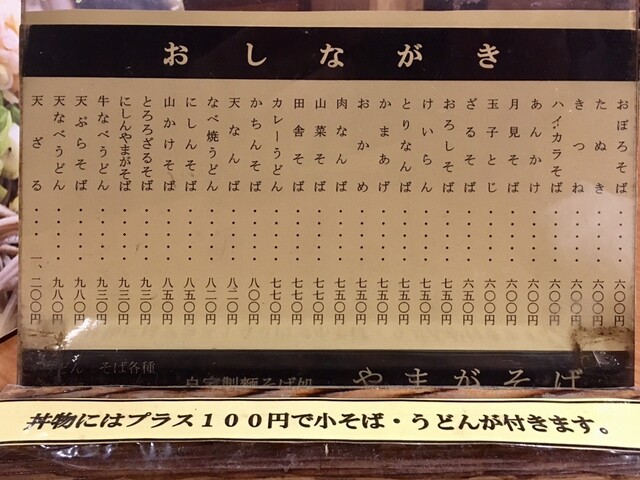 おしながき
おぼろそば・・・・・六〇〇円
たぬき・・・・・六〇〇円
きつね・・・・・六〇〇円
ハイカラそば・・・・・六〇〇円
あんかけ・・・・・六〇〇円
月見そば・・・・・六〇〇円
玉子とじ・・・・・六〇〇円
ざるそば・・・・・六五〇円
おろしそば・・・・・七五〇円
けいらん・・・・・七五〇円
とりなんば・・・・・七五〇円
かまあげ・・・・・七五〇円
おかめ・・・・・七五〇円
肉なんば・・・・・七五〇円
山菜そば・・・・・七七〇円
田舎そば・・・・・七七〇円
カレーうどん・・・・・七七〇円
かちんそば・・・・・八〇〇円
天なんば・・・・・八二〇円
なべ焼うどん・・・・・八二〇円
にしんそば・・・・・八五〇円
山かけそば・・・・・八五〇円
とろろざるそば・・・・・九三〇円
にしんやまがそば・・・・・九三〇円
牛なべうどん・・・・・九三〇円
天ぷらそば・・・・・九八〇円
天なべうどん・・・・・九八〇円
天ざる・・・・・一、二〇〇円
そば各種
自家製麺そば処 やまがそば
丼物にはプラス１００円で小そば・うどんが付きます。